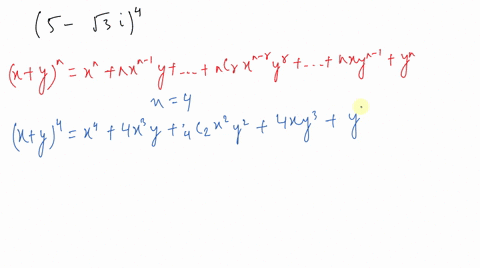 (5 - √3 i)⁴
(x+y)ⁿ = xⁿ + nxⁿ⁻¹y + .... + nCr xⁿ⁻ʳyʳ + ... + nxyⁿ⁻¹ + yⁿ
n = 4
(x+y)⁴ = x⁴ + 4x³y + 4C2 x²y² + 4xy³ + y